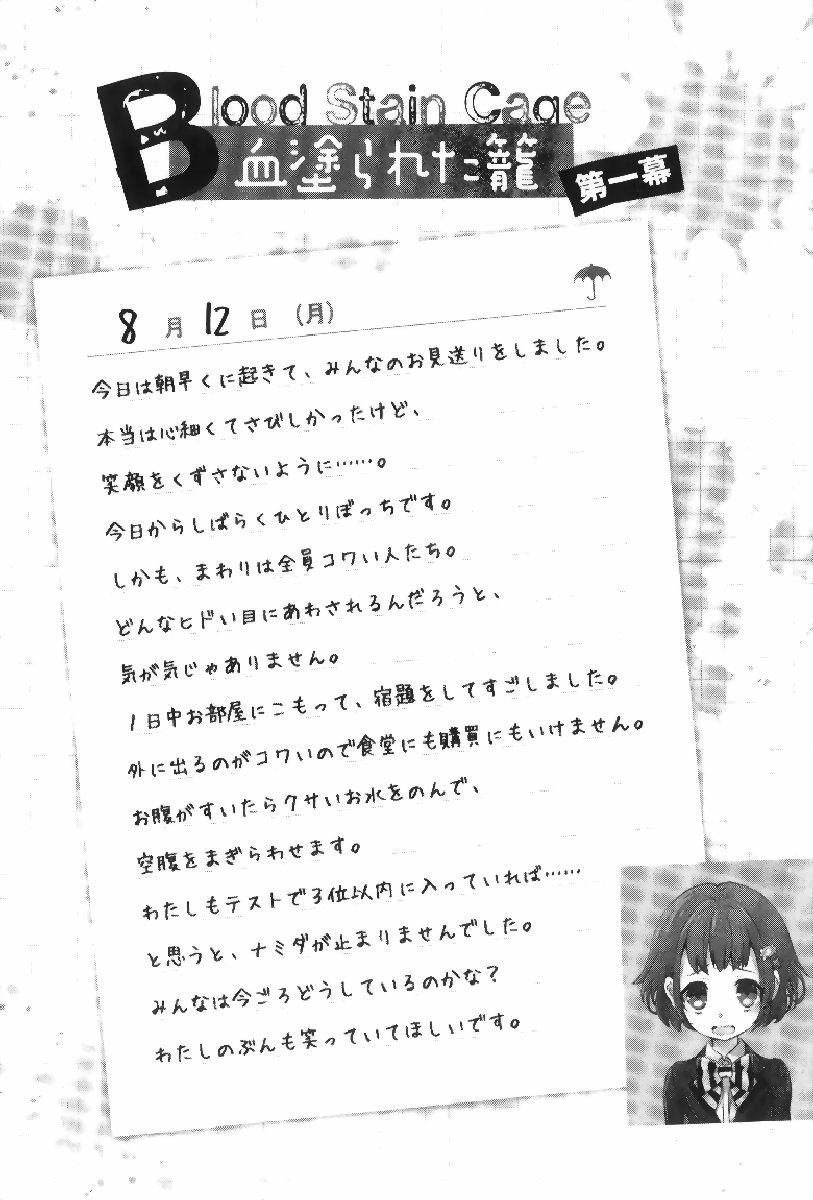 Blood Stain Cage
血塗られた籠
第一幕
8月12日(月)
今日は朝早くに起きて、みんなのお見送りをしました。
本当は心細くてさびしかったけど、
笑顔をくずさないように……。
今日からしばらくひとりぼっちです。
しかも、まわりは全員コワい人たち。
どんなヒドい目にあわされるんだろうと、
気が気じゃありません。
1日中お部屋にこもって、宿題をしてすごしました。
外に出るのがコワいので食堂にも購買にもいけません。
お腹がすいたらクサいお水をのんで、
空腹をまぎらわせます。
わたしもテストで3位以内に入っていれば……
と思うと、ナミダが止まりませんでした。
みんなは今ごろどうしているのかな?
わたしのぶんも笑っていてほしいです。